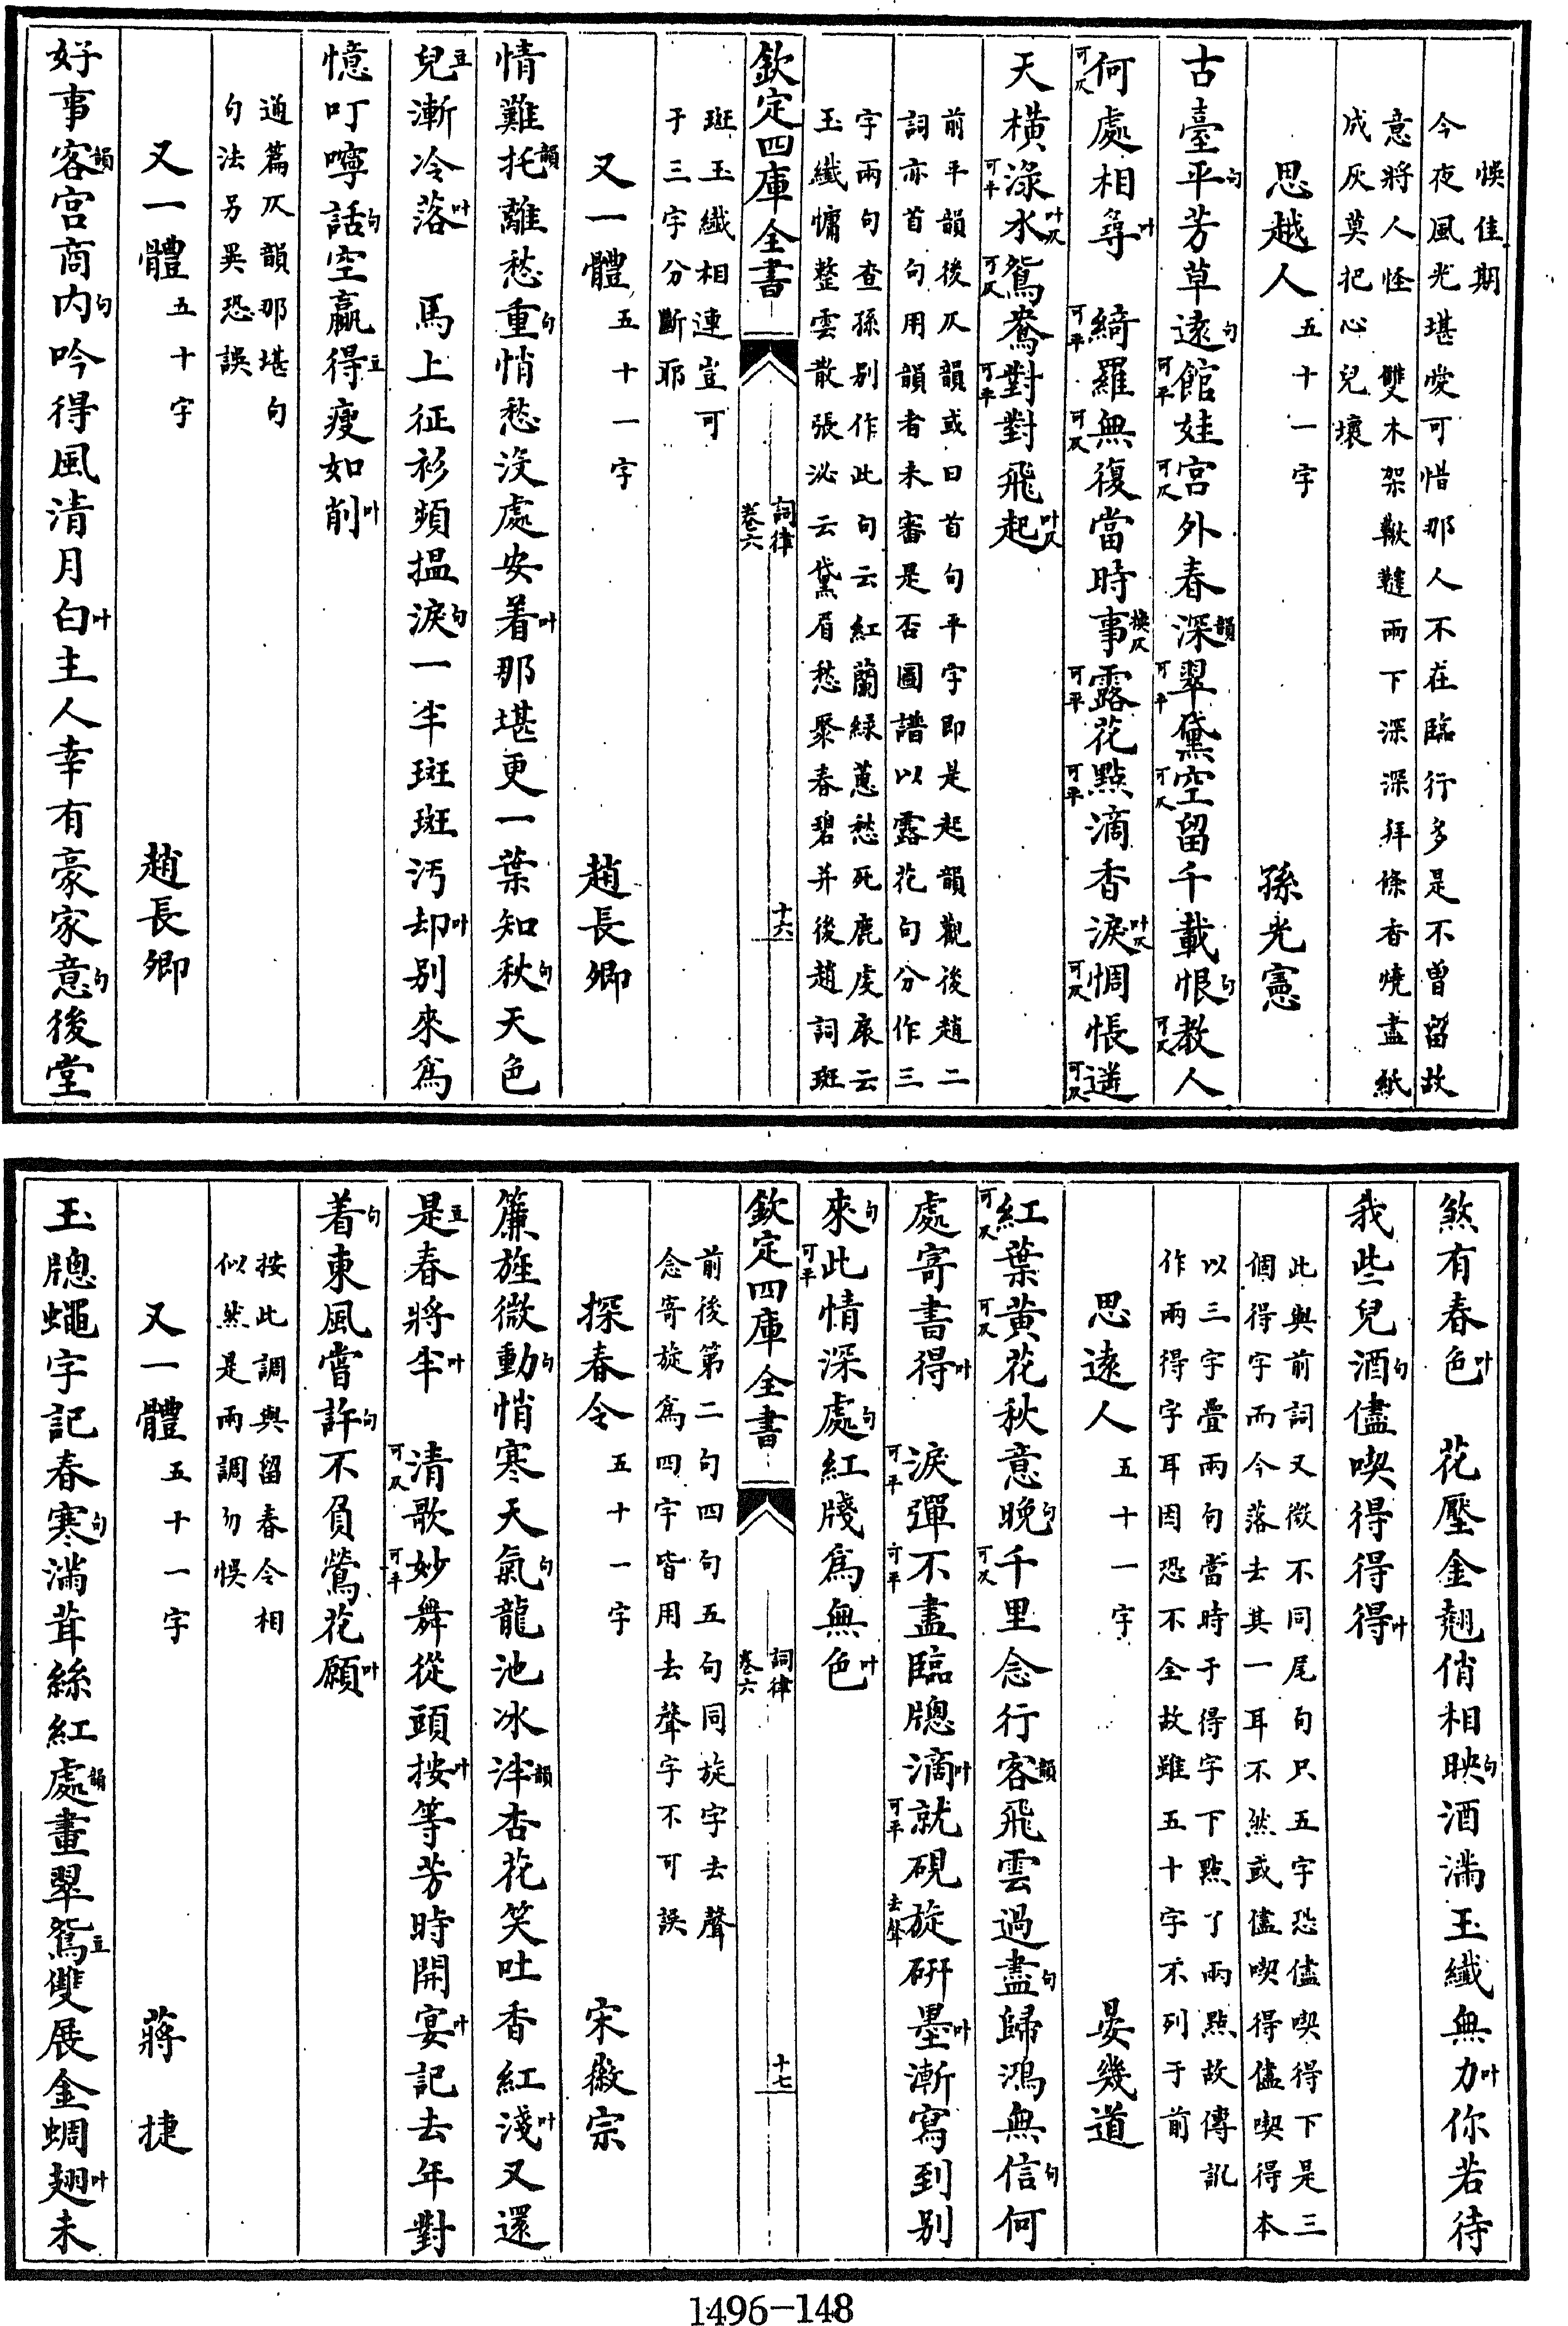 悞佳期
今夜風光堪愛可惜那人不在臨行多是不曽留故
意將人怪　雙木架鞦韆兩下深深拜條香燒盡紙
成灰莫把心兒壞
思越人五十一字　孫光憲
古臺平句芳草逺句館可平娃宮可仄外春深韻翠可平黛空可仄留千載恨句教可仄人
何可仄處相尋叶　綺可平羅無可仄復當時事換仄露可平花點可平滴香淚叶仄惆可仄悵遥可仄
天橫淥可平水叶仄鴛可仄鴦對可平對飛起叶仄
前平韻後仄韻或曰首句平字即是起韻觀後趙二
詞亦首句用韻者未審是否圖譜以露花句分作三
字兩句查孫别作此句云紅蘭綠蕙愁死鹿虔扆云
玉纖慵整雲散張泌云黛眉愁聚春碧并後趙詞斑
欽定四庫全書　詞律卷六　十六
斑玉纖相連豈可
于三字分斷耶
又一體五十一字　趙長卿
情難托韻離愁重句悄愁没處安着叶那堪更一葉知秋句天色
兒豆漸冷落叶　馬上征衫頻搵淚句一半斑斑汚却叶别來爲
憶叮嚀話句空贏得豆瘦如削叶
通篇仄韻那堪句
句法另異恐誤
又一體五十字　趙長卿
好事客韻宮商内句吟得風清月白叶主人幸有豪家意句後堂
煞有春色叶　花壓金翹俏相映句酒滿玉纖無力叶你若待
我些兒酒句儘喫得得得叶
此與前詞又微不同尾句只五字恐儘喫得下是三
個得字而今落去其一耳不然或儘喫得儘喫得本
以三字疊兩句當時于得字下點了兩點故傳訛
作兩得字耳因恐不全故雖五十字不列于前
思逺人五十一字　晏幾道
紅可仄葉黄可仄花秋意晚句千可仄里念行客韻飛雲過盡句歸鴻無信句何
處寄書得叶　淚可平彈不可平盡臨牕滴叶就可平硯旋去聲研墨叶漸寫到别
來句此可平情深處句紅牋爲無色叶
欽定四庫全書　詞律卷六　十七
前後第二句四句五句同旋字去聲
念寄旋爲四字皆用去聲字不可誤
探春令五十一字　宋徽宗
簾旌微動句悄寒天氣句龍池冰泮韻杏花笑吐香紅淺叶又還
是豆春將半叶　清可仄歌妙可平舞從頭按叶等芳時開宴叶記去年對
着句東風嘗許句不負鶯花願叶
按此調與留春令相
似然是兩調勿悞
又一體五十一字　蔣捷
玉牕蠅字記春寒句滿茸絲紅處韻畫翠鴛豆雙展金蜩翅叶未
1496-148